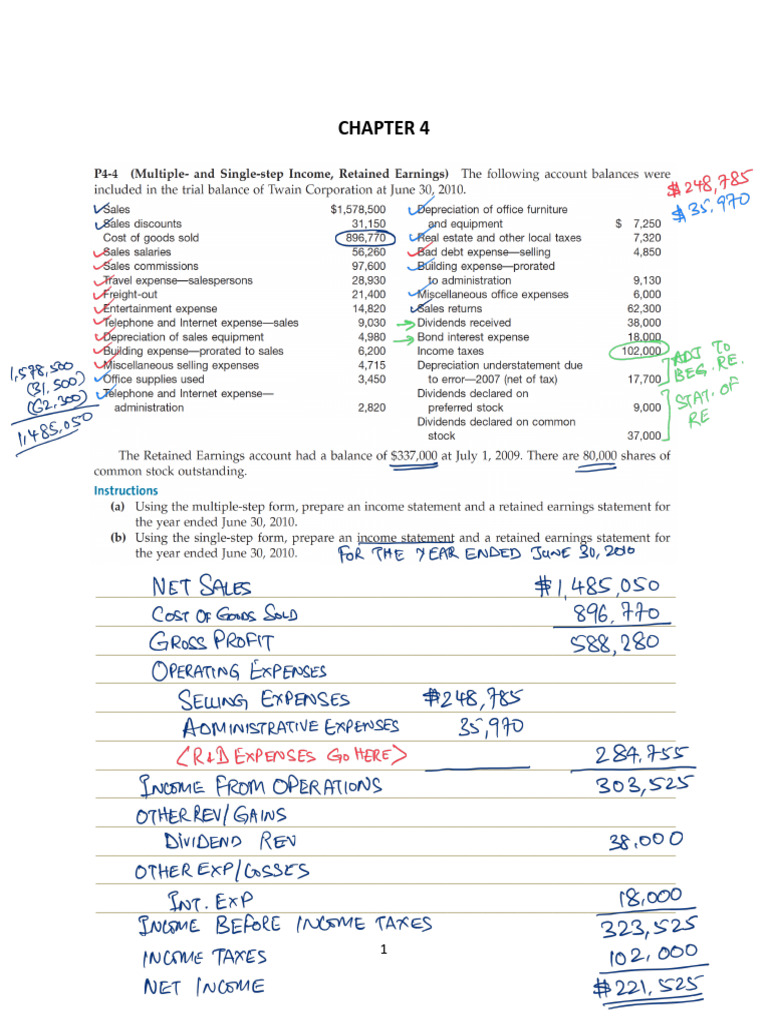 CHAPTER 4
P4-4 (Multiple- and Single-step Income, Retained Earnings) The following account balances were
included in the trial balance of Twain Corporation at June 30, 2010.
$248,785
$35,970
Sales $1,578,500
Sales discounts 31,150
Cost of goods sold 896,770
Sales salaries 56,260
Sales commissions 97,600
Travel expense—salespersons 28,930
Freight-out 21,400
Entertainment expense 14,820
Telephone and Internet expense—sales 9,030
Depreciation of sales equipment 4,980
Building expense—prorated to sales 6,200
Miscellaneous selling expenses 4,715
Office supplies used 3,450
Telephone and Internet expense—
administration 2,820
Depreciation of office furniture
and equipment $ 7,250
Real estate and other local taxes 7,320
Bad debt expense—selling 4,850
Building expense—prorated
to administration 9,130
Miscellaneous office expenses 6,000
Sales returns 62,300
Dividends received 38,000
Bond interest expense 18,000
Income taxes 102,000
Depreciation understatement due
to error—2007 (net of tax) 17,700
Dividends declared on
preferred stock 9,000
Dividends declared on common
stock 37,000
ADJ TO
BEG. RE.
STAT. OF
RE
1,578,500
(31,500)
(62,300)
1,485,050
The Retained Earnings account had a balance of $337,000 at July 1, 2009. There are 80,000 shares of
common stock outstanding.
Instructions
(a) Using the multiple-step form, prepare an income statement and a retained earnings statement for
the year ended June 30, 2010.
(b) Using the single-step form, prepare an income statement and a retained earnings statement for
the year ended June 30, 2010.
FOR THE YEAR ENDED JUNE 30, 2010
NET SALES $1,485,050
COST OF GOODS SOLD 896,770
GROSS PROFIT 588,280
OPERATING EXPENSES
SELLING EXPENSES $248,785
ADMINISTRATIVE EXPENSES 35,970
<R&D EXPENSES GO HERE> 284,755
INCOME FROM OPERATIONS 303,525
OTHER REV/GAINS
DIVIDEND REV 38,000
OTHER EXP/LOSSES
INT. EXP 18,000
INCOME BEFORE INCOME TAXES 323,525
INCOME TAXES 102,000
NET INCOME $221,525
1